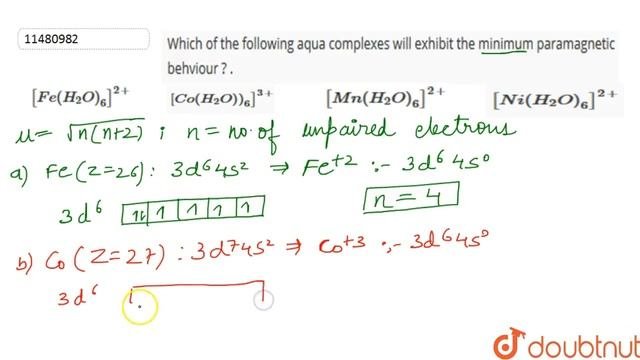 11480982
Which of the following aqua complexes will exhibit the minimum paramagnetic
behviour ? .
[Fe(H₂O)₆]²⁺ [Co(H₂O))₆]³⁺ [Mn(H₂O)₆]²⁺ [Ni(H₂O)₆]²⁺
μ= √n(n+2) ; n = no. of unpaired electrons
a) Fe(Z=26) : 3d⁶4s² ⇒ Fe⁺² :- 3d⁶ 4s⁰
3d⁶ 1l 1 1 1 1 n = 4
b) Co (Z=27) : 3d⁷4s² ⇒ Co⁺³ :- 3d⁶4s⁰
3d⁶
doubtnut